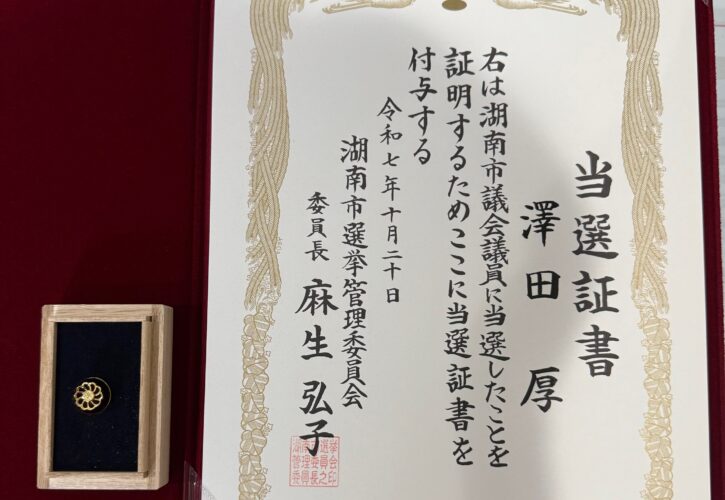 当選証書
澤田厚
右は湖南市議会議員に当選したことを
証明するためここに当選証書を
付与する
令和七年十月二十日
湖南市選挙管理委員会
委員長 麻生弘子